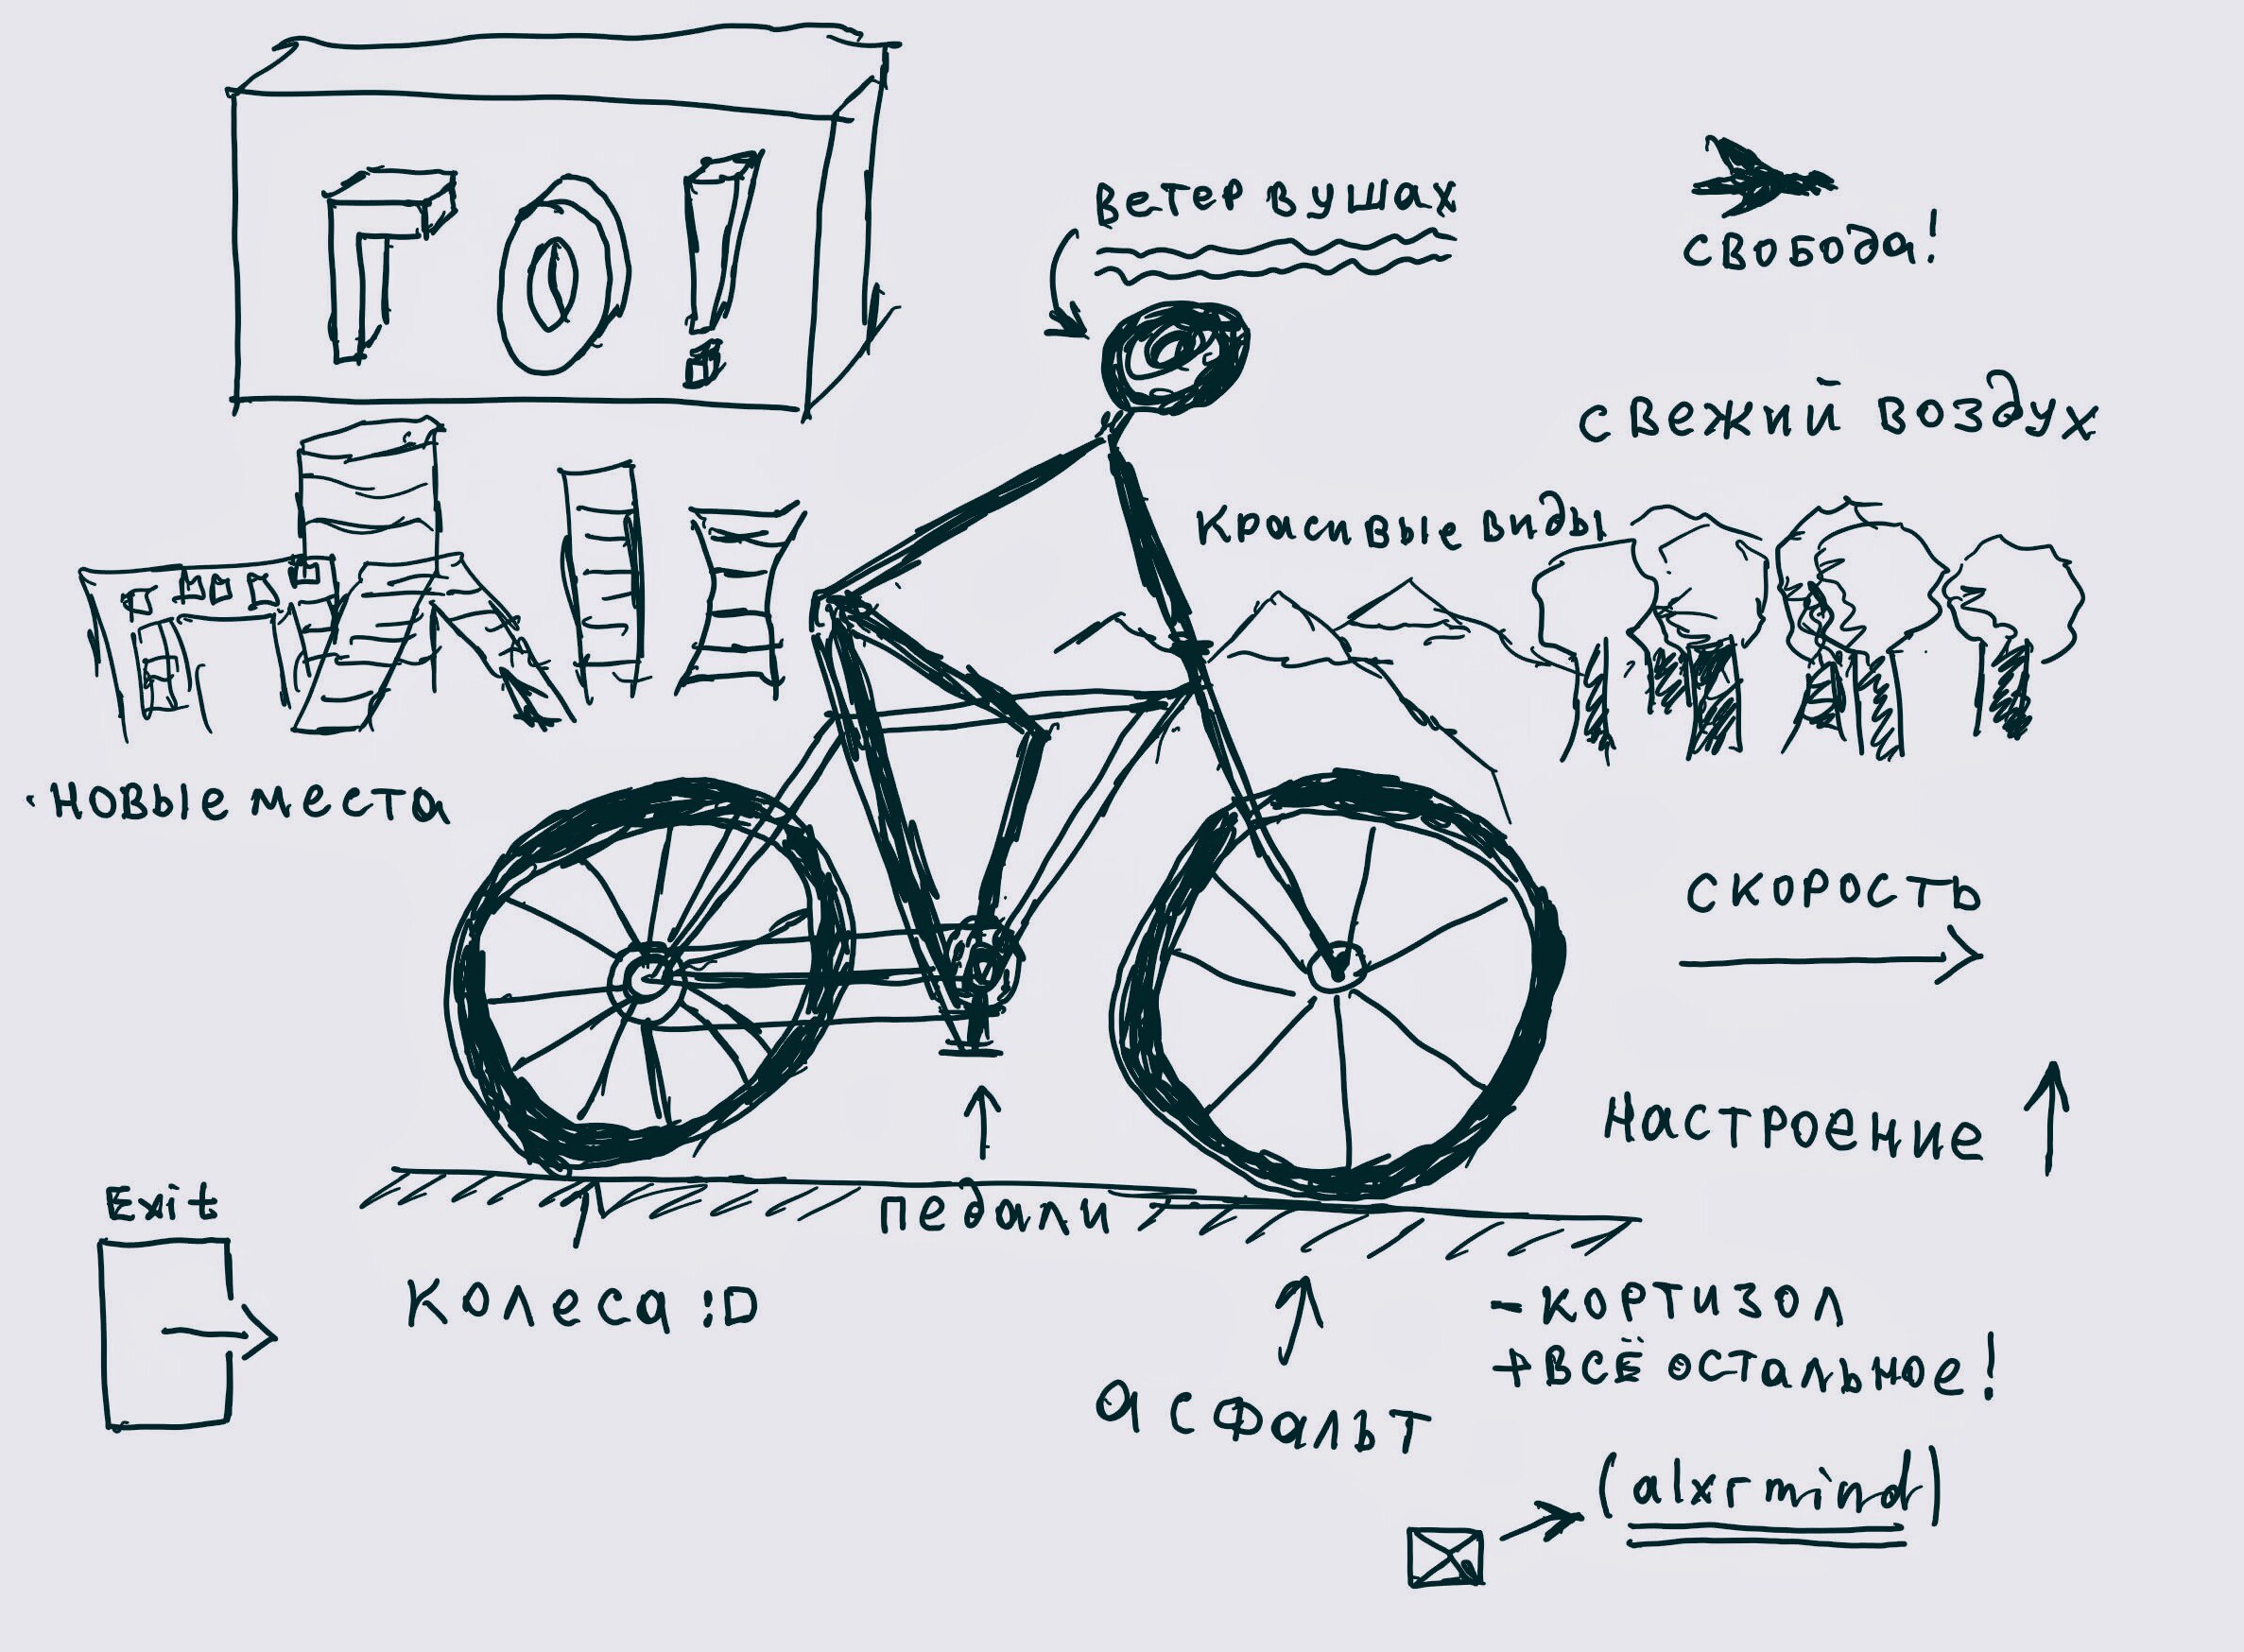 ГО!
Ветер в ушах
свобода!
свежий воздух
Красивые виды
новые места
скорость
Настроение
Exit
педали
Колеса :D
- кортизол
+ всё остальное!
асфальт
(alxrmind)